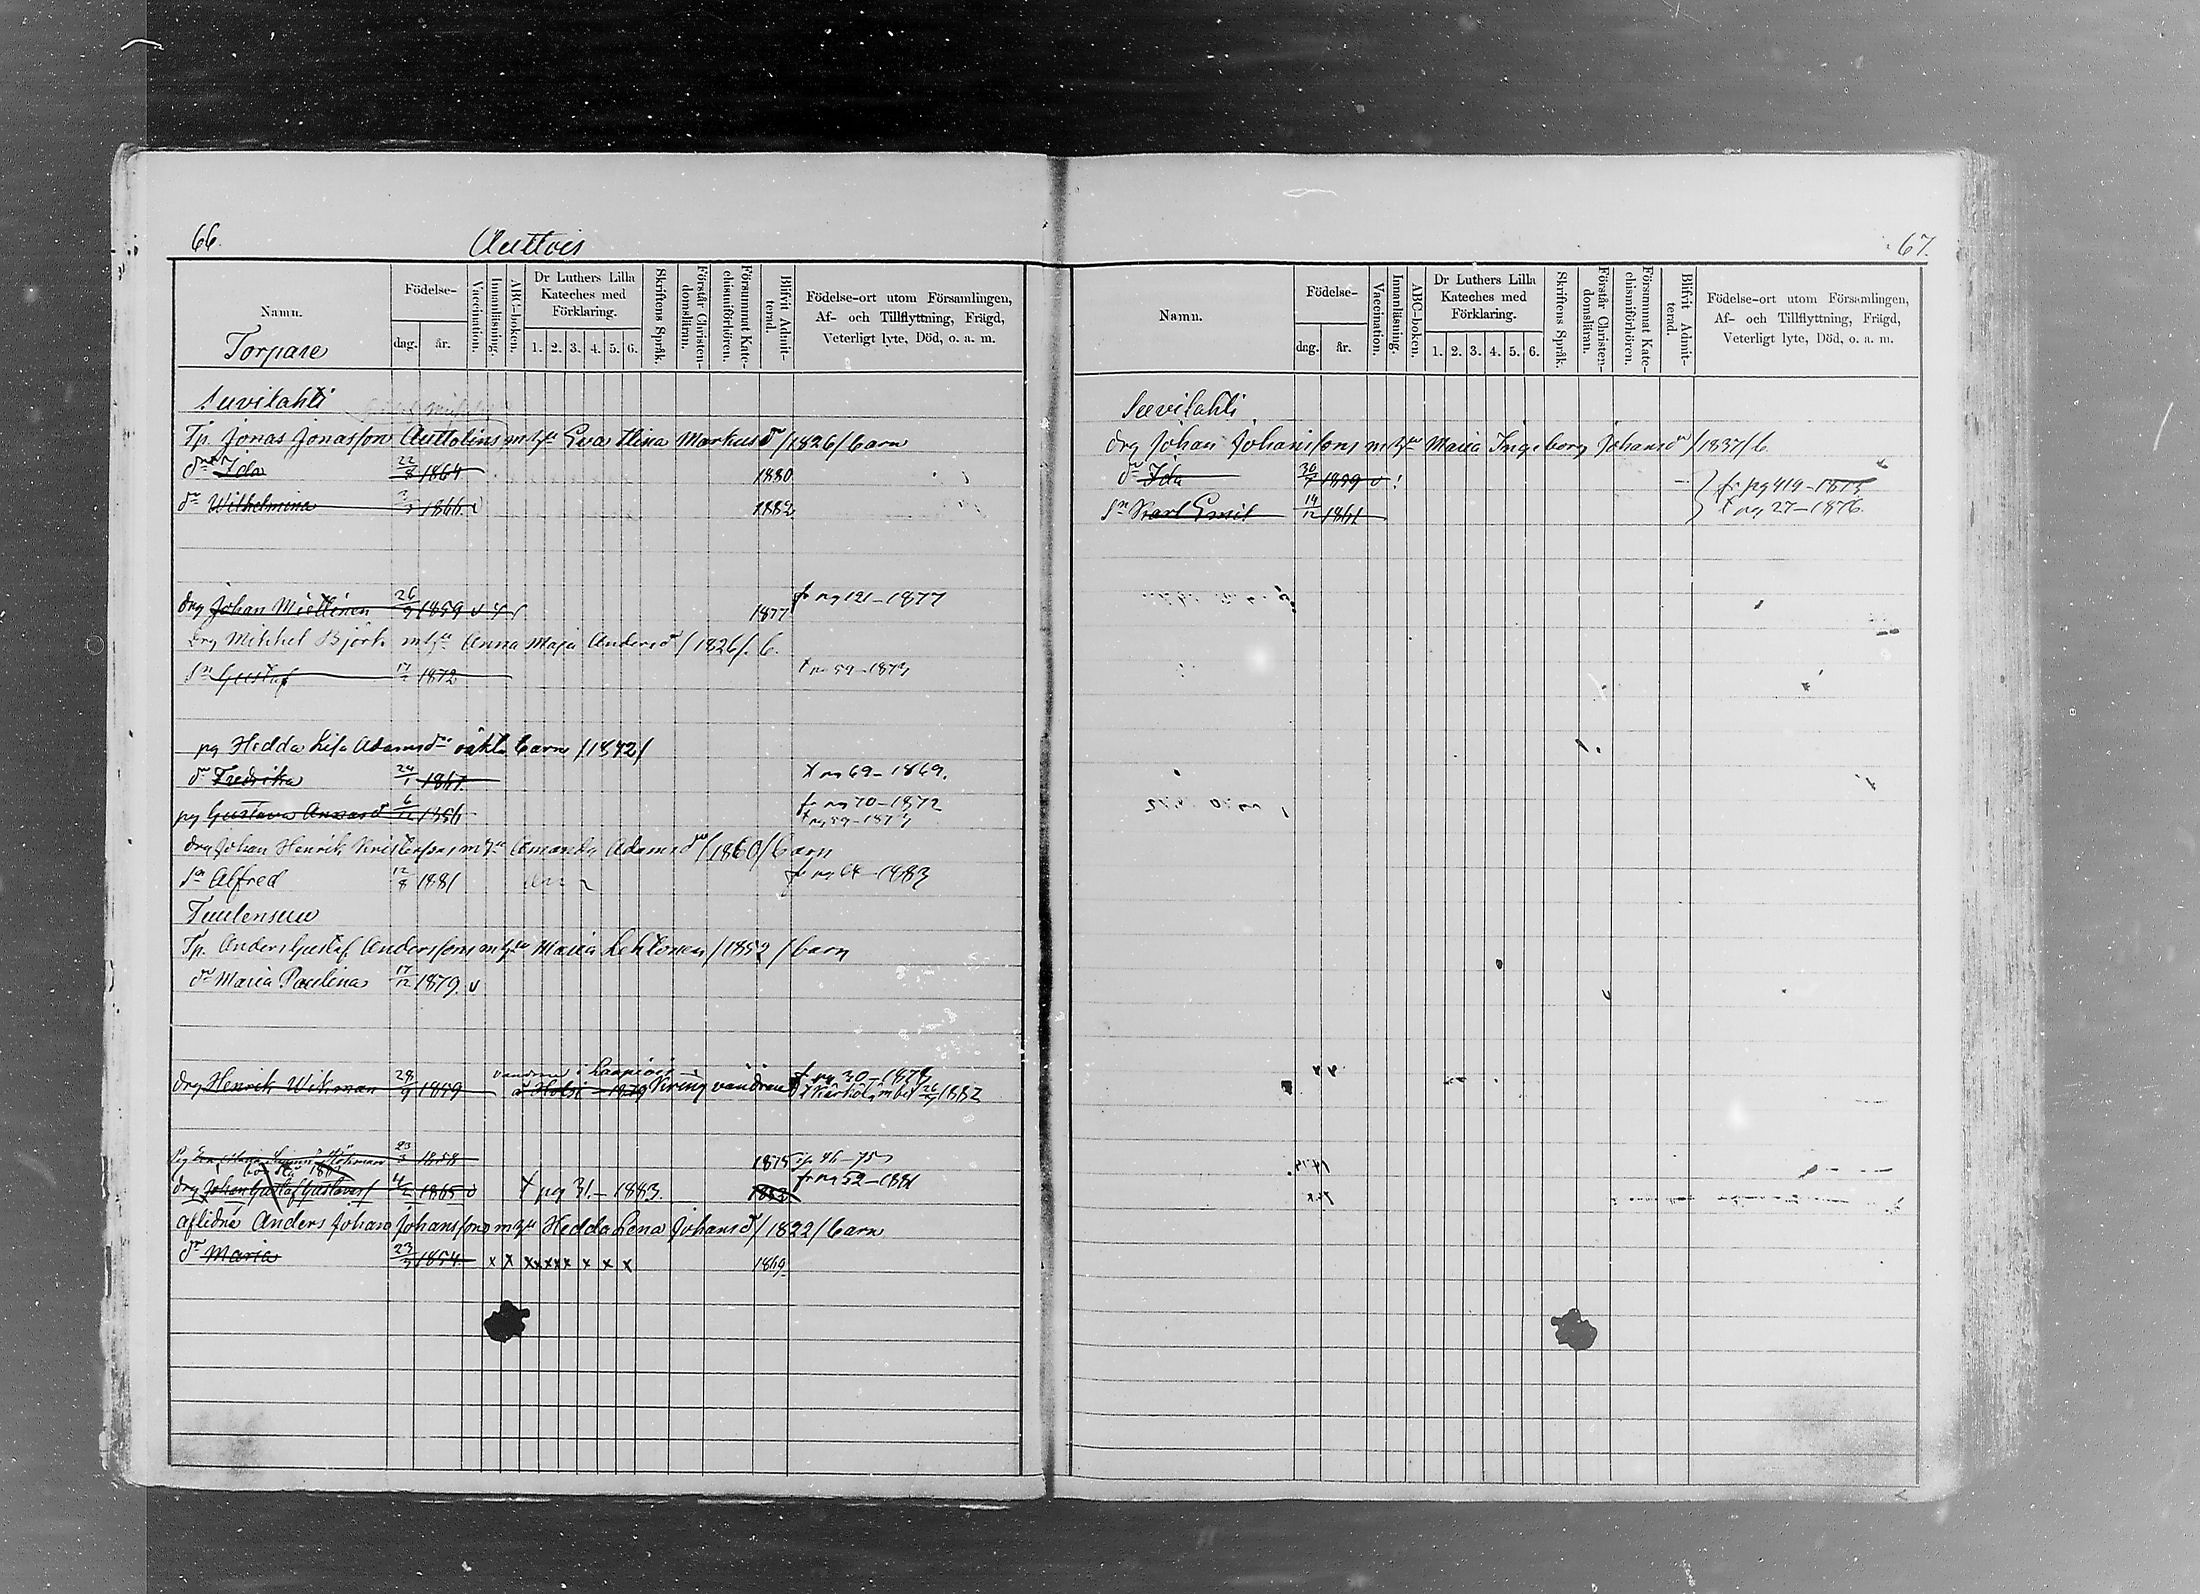 66.
Auttois
Namn.
Torpare
Födelse-
dag.
år.
Vaccination.
Innanläsning.
ABC-boken.
Dr Luthers Lilla Kateches med Förklaring.
1. 2. 3. 4. 5. 6.
Skriftens Språk.
Förstår Christendomsläran.
Försummat Katechismiförhören.
Blifvit Admitterad.
Födelse-ort utom Församlingen,
Af- och Tillflyttning, Frägd,
Veterligt lyte, Död, o. a. m.
Suvilahti
Tp. Jonas Jonasson Auttolins m hu Eva Stina Markusdr /1826/ barn
dr Ida 22/8 1864 1880
dr Wilhelmina 1866 v 1882
drg Johan Miettinen 26/9 1859 v 1877 fr pg 121–1877
Drg Mikkel Björk m hu Anna Maja Andersdr /1826/. b.
sn Gustaf 1872 t pg 59–1873
pg Hedda Lisa Adamsdrs oäkta barn /1842/
dr Fredrika 24/1 1861 t pg 69–1869.
pg Gustava 6/12 1856 fr pg 70–1872
t pg 59–1873
drg Johan Henrik Kristersons m hu Amanda Adamsdr /1860/ barn
sn Alfred 12/8 1881 fr pg 64–1883
Tuulensuu
Tp. Anders Gustaf Anderssons m hu Maria Lehtonen /1852/ barn
dr Maria Paulina 17/12 1879. v
drg Henrik Wikman 28/9 1859 Kring vandrand fr pg 30–1878
1882
1858 1875
drg Johan Gustaf Gustavss 4/2 1865 v t pg 31.–1883. 1882 fr pg 52–1881
aflidne Anders Johan Johanssons m hu Hedda Lena Johansdr /1822/ barn
dr Maria 23/3 1854 x x x x x x x x x x 1869.
67.
Namn.
Födelse-
dag.
år.
Vaccination.
Innanläsning.
ABC-boken.
Dr Luthers Lilla Kateches med Förklaring.
1. 2. 3. 4. 5. 6.
Skriftens Språk.
Förstår Christendomsläran.
Försummat Katechismiförhören.
Blifvit Admitterad.
Födelse-ort utom Församlingen,
Af- och Tillflyttning, Frägd,
Veterligt lyte, Död, o. a. m.
Suvilahti
drg Johan Johanssons m hu Maria Ingeborg Johansdr /1837/ b.
dr Ida 30/7 1859 v fr pg 419–1873
sn Karl Emil 14/12 1861 t pg 27–1876.